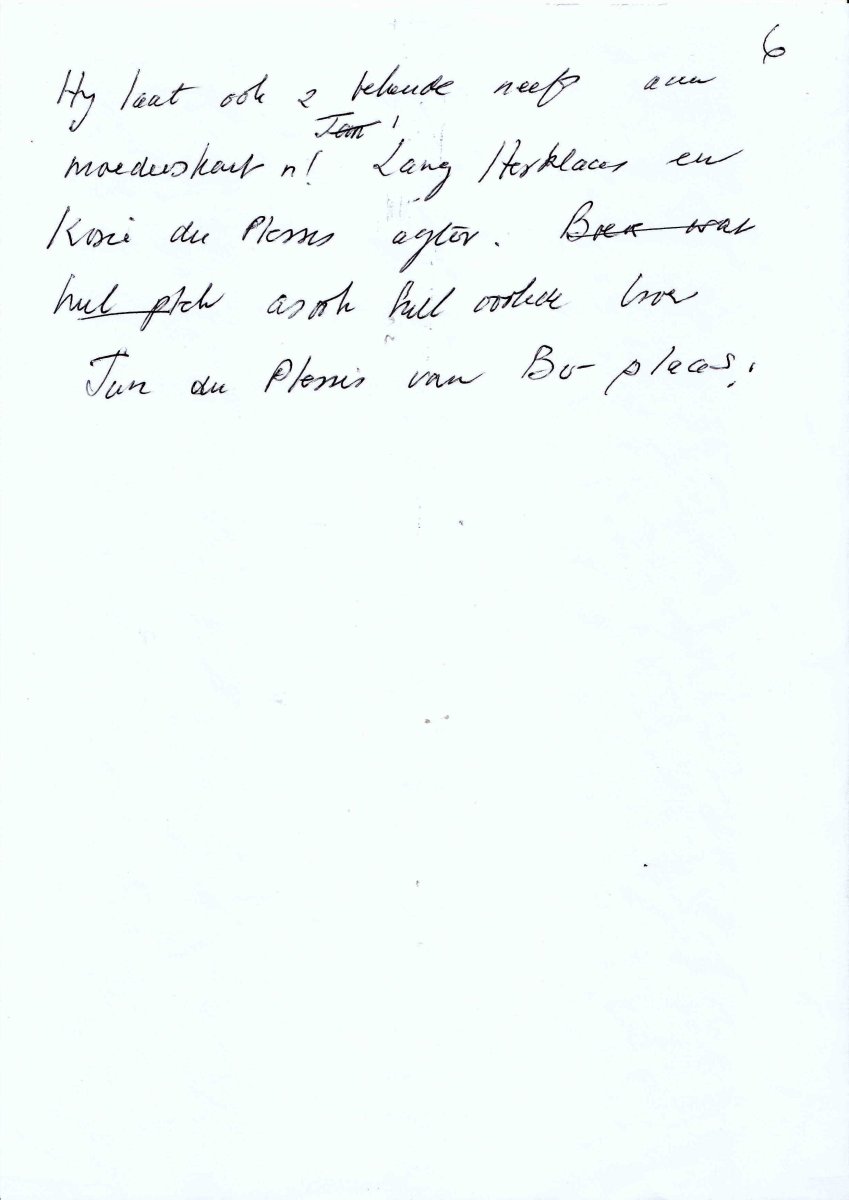 6
Hy laat ook 2 bekende neefs aan
Jan!
moederskant nl. Lang Herklaas en
Kosie du Plessis agter. Boer wat
hul asook hul oorlede broer
Jan du Plessis van Bo-plaas.